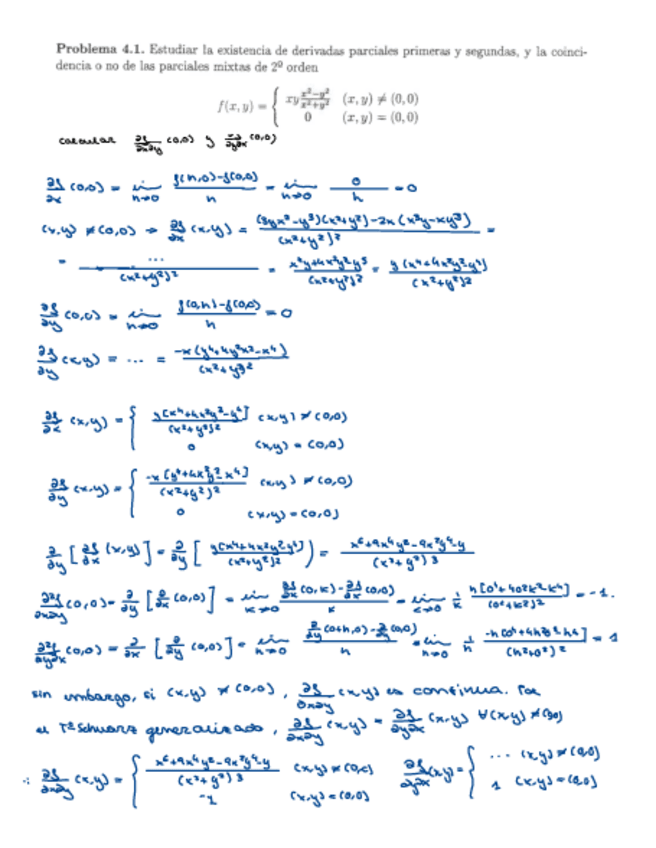 Problema 4.1. Estudiar la existencia de derivadas parciales primeras y segundas, y la coinci-
dencia o no de las parciales mixtas de 2º orden
f(x, y) = { xy (x²−y²)/(x²+y²) (x, y) ≠ (0, 0)
0 (x, y) = (0, 0)
calcular ∂f/∂x∂y (0,0) y ∂f/∂y∂x (0,0)
∂f/∂x (0,0) = lim h→0 (f(h,0)-f(0,0))/h = lim h→0 0/h = 0
(x,y) ≠ (0,0) → ∂f/∂x (x,y) = ((3yx²-y³)(x²+y²)-2x(x³y-xy³))/(x²+y²)² =
= .../(x²+y²)² = (x⁴y+4x²y³-y⁵)/(x²+y²)² = y(x⁴+4x²y²-y⁴)/(x²+y²)²
∂f/∂y (0,0) = lim h→0 (f(0,h)-f(0,0))/h = 0
∂f/∂y (x,y) = ... = -x(y⁴+4y²x²-x⁴)/(x²+y²)²
∂f/∂x (x,y) = { y[x⁴+4x²y²-y⁴]/(x²+y²)² (x,y) ≠ (0,0)
0 (x,y) = (0,0)
∂f/∂y (x,y) = { -x[y⁴+4x²y²-x⁴]/(x²+y²)² (x,y) ≠ (0,0)
0 (x,y) = (0,0)
∂/∂y [∂f/∂x (x,y)] = ∂/∂y [y[x⁴+4x²y²-y⁴]/(x²+y²)²) = (x⁶+9x⁴y²-9x²y⁴-y)/(x²+y²)3
∂²f/∂x∂y (0,0) = ∂/∂y [∂/∂x (0,0)] = lim k→0 (∂f/∂x (0,k) - ∂f/∂x (0,0))/k = lim k→0 1/k k[0⁴+40²k²-k⁴]/(0²+k²)² = -1.
∂²f/∂y∂x (0,0) = ∂/∂x [∂/∂y (0,0)] = lim h→0 (∂/∂y (0+h,0) - ∂/∂y (0,0))/h = lim h→0 1/h -h(0⁴+4h²0²-h⁴)/(h²+0²)² = 1
sin embargo, si (x,y) ≠ (0,0), ∂f/∂x∂y (x,y) es continua. Por
el Tª Schwarz generalizado, ∂f/∂x∂y (x,y) = ∂f/∂y∂x (x,y) ∀(x,y) ≠ (0,0)
∴ ∂f/∂x∂y (x,y) = { (x⁶+9x⁴y²-9x²y⁴-y)/(x²+y²)3 (x,y) ≠ (0,0) ∂f/∂y∂x (x,y) = { ... (x,y) ≠ (0,0)
-1 (x,y) = (0,0) 1 (x,y) = (0,0)